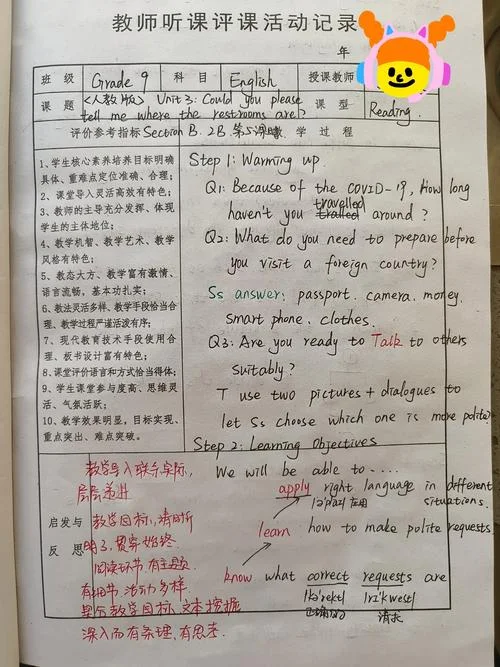 教师听课评课活动记录
年
班 级 Grade 9 科 目 English 授课教师
课 题 <人教版> Unit 3: Could you please tell me where the restrooms are? 课 型 Reading.
评价参考指标 Section B. 2B 第5课时 学 过 程
1、学生核心素养培养目标明确
具体、重难点定位准确、合理;
2、课堂导入灵活高效有特色;
3、教师的主导充分发挥、体现
学生的主体地位;
4、教学机智、教学艺术、教学
风格有特色;
5、教态大方、教学富有激情、
语言流畅,基本功扎实;
6、教法灵活多样、教学手段恰当合
理、教学过程严谨活泼有序;
7、现代教育技术手段使用
合理、板书设计富有特色;
8、课堂评价语言和方式恰当得体;
9、学生课堂参与度高、思维灵
活、气氛活跃;
10、教学效果明显,目标实现、
重点突出、难点突破。
Step 1: Warming up.
Q1: Because of the COVID-19, how long
travelled
haven't you tralled around?
Q2: What do you need to prepare before
you visit a foreign country?
Ss answer: passport. camera. money.
smart phone. clothes.
Q3: Are you ready to Talk to others
suitably?
T use two pictures + dialogues to
let Ss choose which one is more polite?
Step 2: Learning Objectives
启发与
反 思
教学导入联系实际,
层层递进
教学目标,清晰
明了,贯穿始终
阅读环节有主题
有细节,活动多样
紧扣教学目标,文本挖掘
深入而有条理,有思考.
We will be able to....
apply right language in different
situations.
[ə'plaɪ] 应用
learn how to make polite requests
know what correct requests are
[kə'rekt] [rɪ'kwest]
正确的 请求